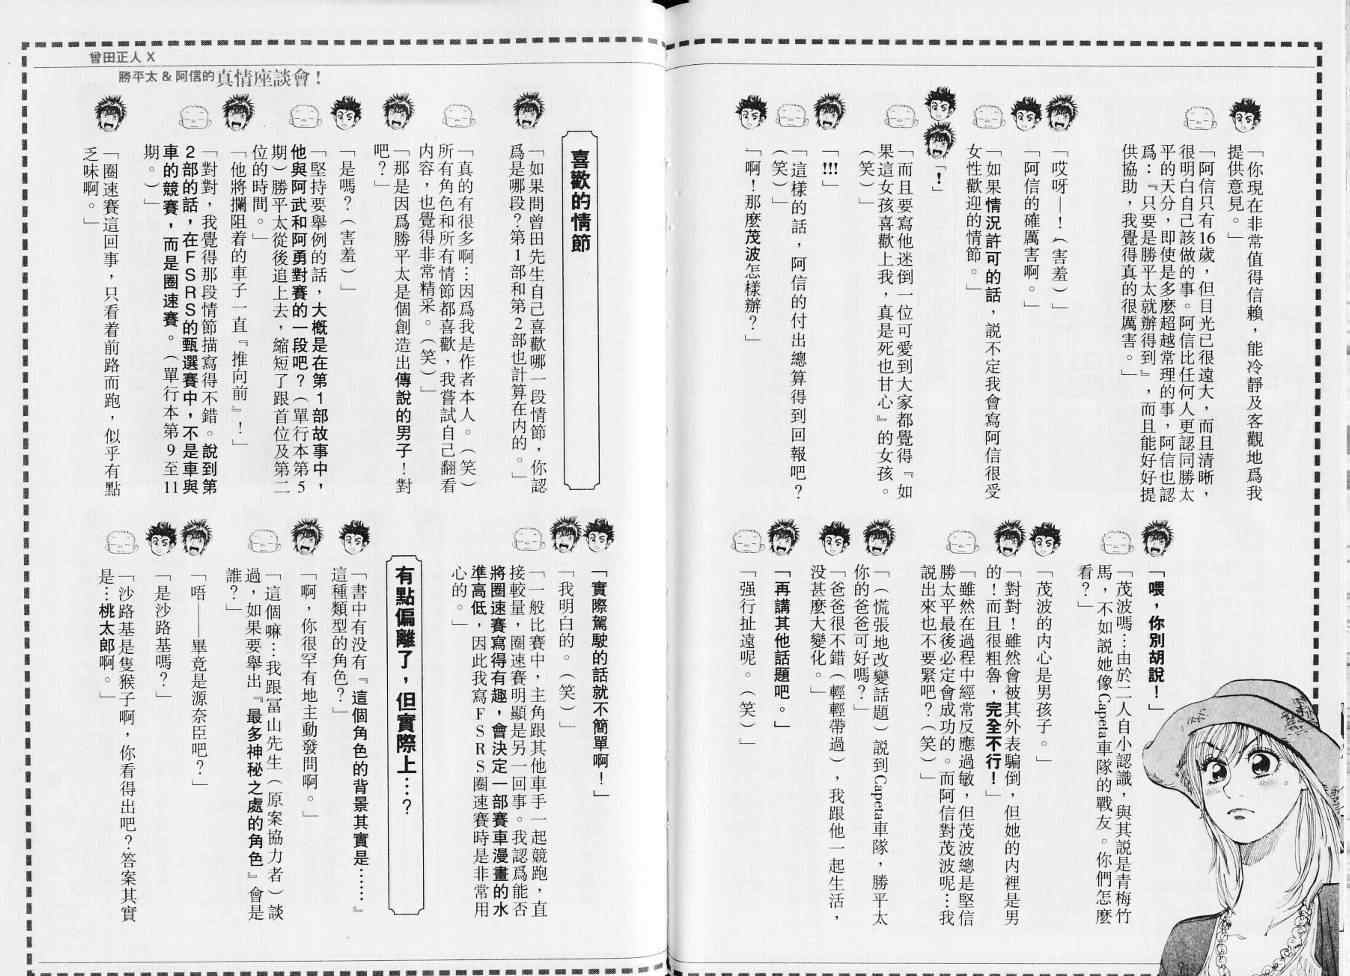 「你現在非常值得信賴，能冷靜及客觀地爲我
提供意見。」
「阿信只有16歲，但目光已很遠大，而且清晰，
很明白自己該做的事。阿信比任何人更認同勝太
平的天分，即使是多麼超越常理的事，阿信也認
爲：『只要是勝平太就辦得到』，而且能好好提
供協助，我覺得真的很厲害。」
「哎呀—！（害羞）」
「阿信的確厲害啊。」
「如果情況許可的話，説不定我會寫阿信很受
女性歡迎的情節。」
「！」
「而且要寫他迷倒一位可愛到大家都覺得『如
果這女孩喜歡上我，真是死也甘心』的女孩。
（笑）」
「!!!」
「這樣的話，阿信的付出總算得到回報吧？
（笑）」
「啊！那麼茂波怎樣辦？」
「喂，你別胡說！」
「茂波嗎…由於二人自小認識，與其説是青梅竹
馬，不如説她像Capeta車隊的戰友。你們怎麼
看？」
「茂波的内心是男孩子。」
「對對！雖然會被其外表騙倒，但她的内裡是男
的！而且很粗魯，完全不行！」
「雖然在過程中經常反應過敏，但茂波總是堅信
勝太平最後必定會成功的。而阿信對茂波呢…我
説出來也不要緊吧？（笑）」
「（慌張地改變話題）説到Capeta車隊，勝平太
你的爸爸可好嗎？」
「爸爸很不錯（輕輕帶過），我跟他一起生活，
没甚麼大變化。」
「再講其他話題吧。」
「强行扯遠呢。（笑）」
曾田正人 X
勝平太 & 阿信的真情座談會！
喜歡的情節
「如果問曾田先生自己喜歡哪一段情節，你認
爲是哪段？第1部和第2部也計算在内的。」
「真的有很多啊…因爲我是作者本人。（笑）
所有角色和所有情節都喜歡，我嘗試自己翻看
内容，也覺得非常精采。（笑）」
「那是因爲勝平太是個創造出傳說的男子！對
吧？」
「是嗎？（害羞）」
「堅持要舉例的話，大概是在第1部故事中，
他與阿武和阿勇對賽的一段吧？（單行本第5
期）勝平太從後追上去，縮短了跟首位及第二
位的時間。」
「他將攔阻着的車子一直『推向前』！」
「對對，我覺得那段情節描寫得不錯。說到第
2部的話，在FSRS的甄選賽中，不是車與
車的競賽，而是圈速賽。（單行本第9至11
期。）」
「圈速賽這回事，只看着前路而跑，似乎有點
乏味啊。」
「實際駕駛的話就不簡單啊！」
「我明白的。（笑）」
「一般比賽中，主角跟其他車手一起競跑，直
接較量，圈速賽明顯是另一回事。我認爲能否
將圈速賽寫得有趣，會決定一部賽車漫畫的水
準高低，因此我寫FSRS圈速賽時是非常用
心的。」
有點偏離了，但實際上…？
「書中有没有『這個角色的背景其實是……』
這種類型的角色？」
「啊，你很罕有地主動發問啊。」
「這個嘛…我跟冨山先生（原案協力者）談
過，如果要舉出『最多神秘之處的角色』會是
誰？」
「唔——畢竟是源奈臣吧？」
「是沙路基嗎？」
「沙路基是隻猴子啊，你看得出吧？答案其實
是…桃太郎啊。」